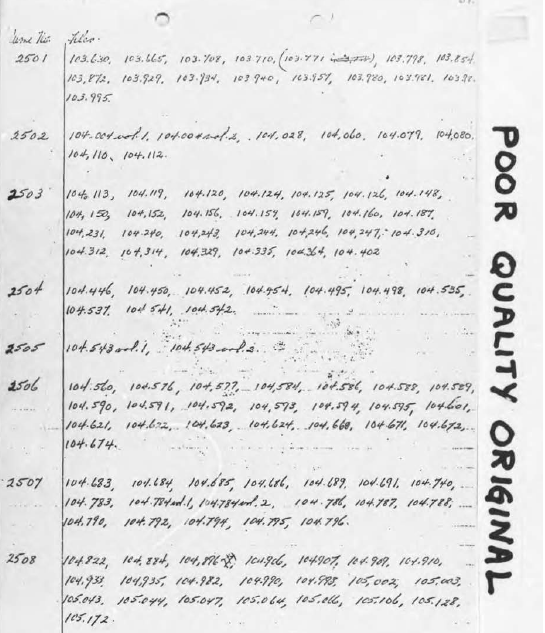 Files.
2501 103.630, 103.665, 103.708, 103.710, (103.771), 103.798, 103.854
103,872, 103.929, 103.934, 103.940, 103.957, 103.980, 103.981,
103.995.
2502 104.004 vol. 1, 104.004 vol. 2, 104.028, 104,060, 104.079, 104,080.
104,110, 104.112.
2503 104,113, 104.119, 104.120, 104.124, 104.125, 104.126, 104.148,
104,150, 104,152, 104.156, 104.157, 104.159, 104.160, 104.187,
104,231, 104.240, 104,243, 104,244, 104,246, 104,247, 104.310,
104.312, 104,314, 104.329, 104.335, 104.364, 104.402
2504 104.446, 104.450, 104.452, 104.454, 104.495, 104.498, 104.535,
104.537, 104.541, 104.542.
2505 104.543 vol. 1, 104.543 vol. 2.
2506 104.560, 104.576, 104,577, 104,584, 104.586, 104.588, 104.589,
104.590, 104.591, 104.592, 104,593, 104.594, 104.595, 104.601,
104.621, 104.622, 104.623, 104.624, 104,668, 104.671, 104.672,
104.674.
2507 104.683, 104.684, 104.685, 104.686, 104.689, 104.691, 104.740,
104.783, 104.784 vol. 1, 104.784 vol. 2, 104.786, 104.787, 104.788,
104.790, 104.792, 104.794, 104.795, 104.796.
2508 104,822, 104,884, 104,896, 104.906, 104.907, 104.909, 104.910,
104.933, 104,935, 104.982, 104.990, 104.998, 105,002, 105,003,
105.043, 105.044, 105.047, 105.064, 105.066, 105.106, 105.128,
105.172.
POOR QUALITY ORIGINAL